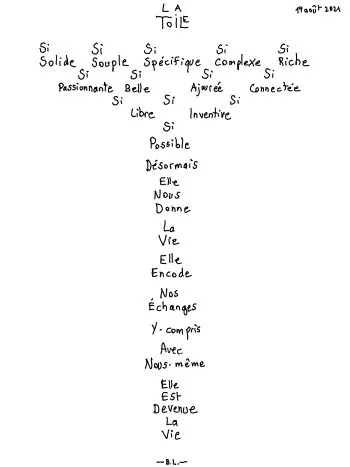 LA
TOILE
19 août 2021
Si Si Si Si Si
Solide Souple Spécifique Complexe Riche
Si Si Si Si
Passionnante Belle Ajourée Connectée
Si Si Si
Libre Inventive
Si
Possible
Désormais
Elle
Nous
Donne
La
Vie
Elle
Encode
Nos
Échanges
Y-compris
Avec
Nous-même
Elle
Est
Devenue
La
Vie
—B.L.—